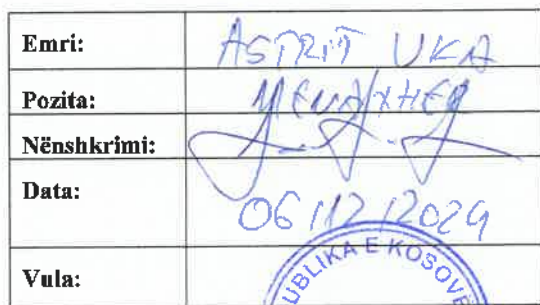 Emri: ASTRIT UKA
Pozita: MENAXHER
Nënshkrimi:
Data: 06/12/2024
Vula:
UBLIKA E KOSOVË